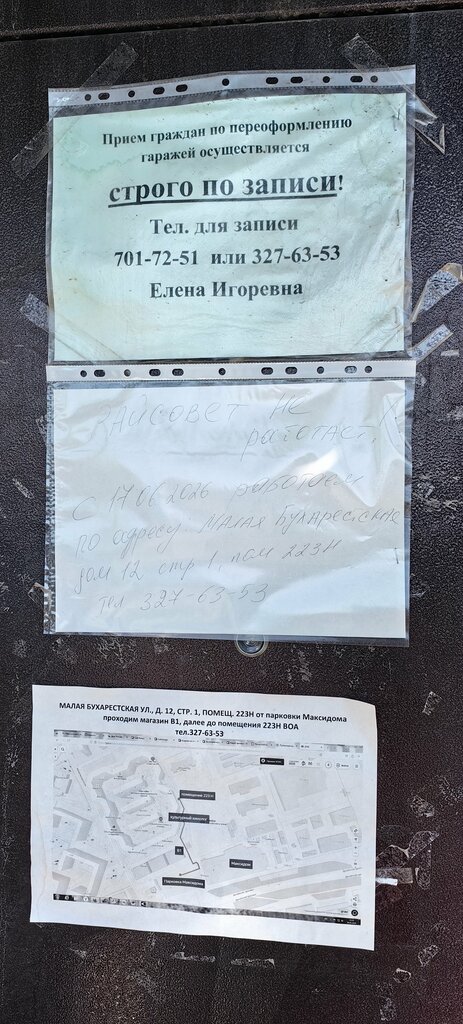 Прием граждан по переоформлению
гаражей осуществляется
строго по записи!
Тел. для записи
701-72-51 или 327-63-53
Елена Игоревна
РАЙСОВЕТ НЕ
работает.
С 17 06 2026 работаем
по адресу. Малая Бухарестская
дом 12 стр 1, пом 223Н
тел 327-63-53
МАЛАЯ БУХАРЕСТСКАЯ УЛ., Д. 12, СТР. 1, ПОМЕЩ. 223Н от парковки Максидома
проходим магазин В1, далее до помещения 223Н ВОА
тел.327-63-53
помещение 223 Н
В1
Максидом
Парковка Максидома